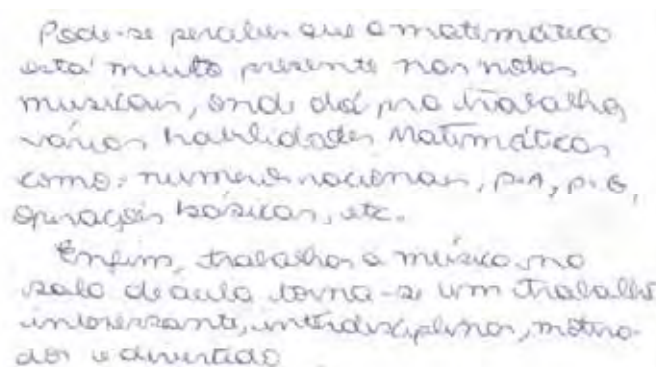 Pode-se perceber que a matemática
está muito presente nas notas
musicais, onde dá pra trabalhar
várias habilidades Matemáticas
como: números racionais, P.A, P.G,
operações básicas, etc.
Enfim, trabalhar a música na
sala de aula torna-se um trabalho
interessante, interdisciplinar, motiva-
dor e divertido